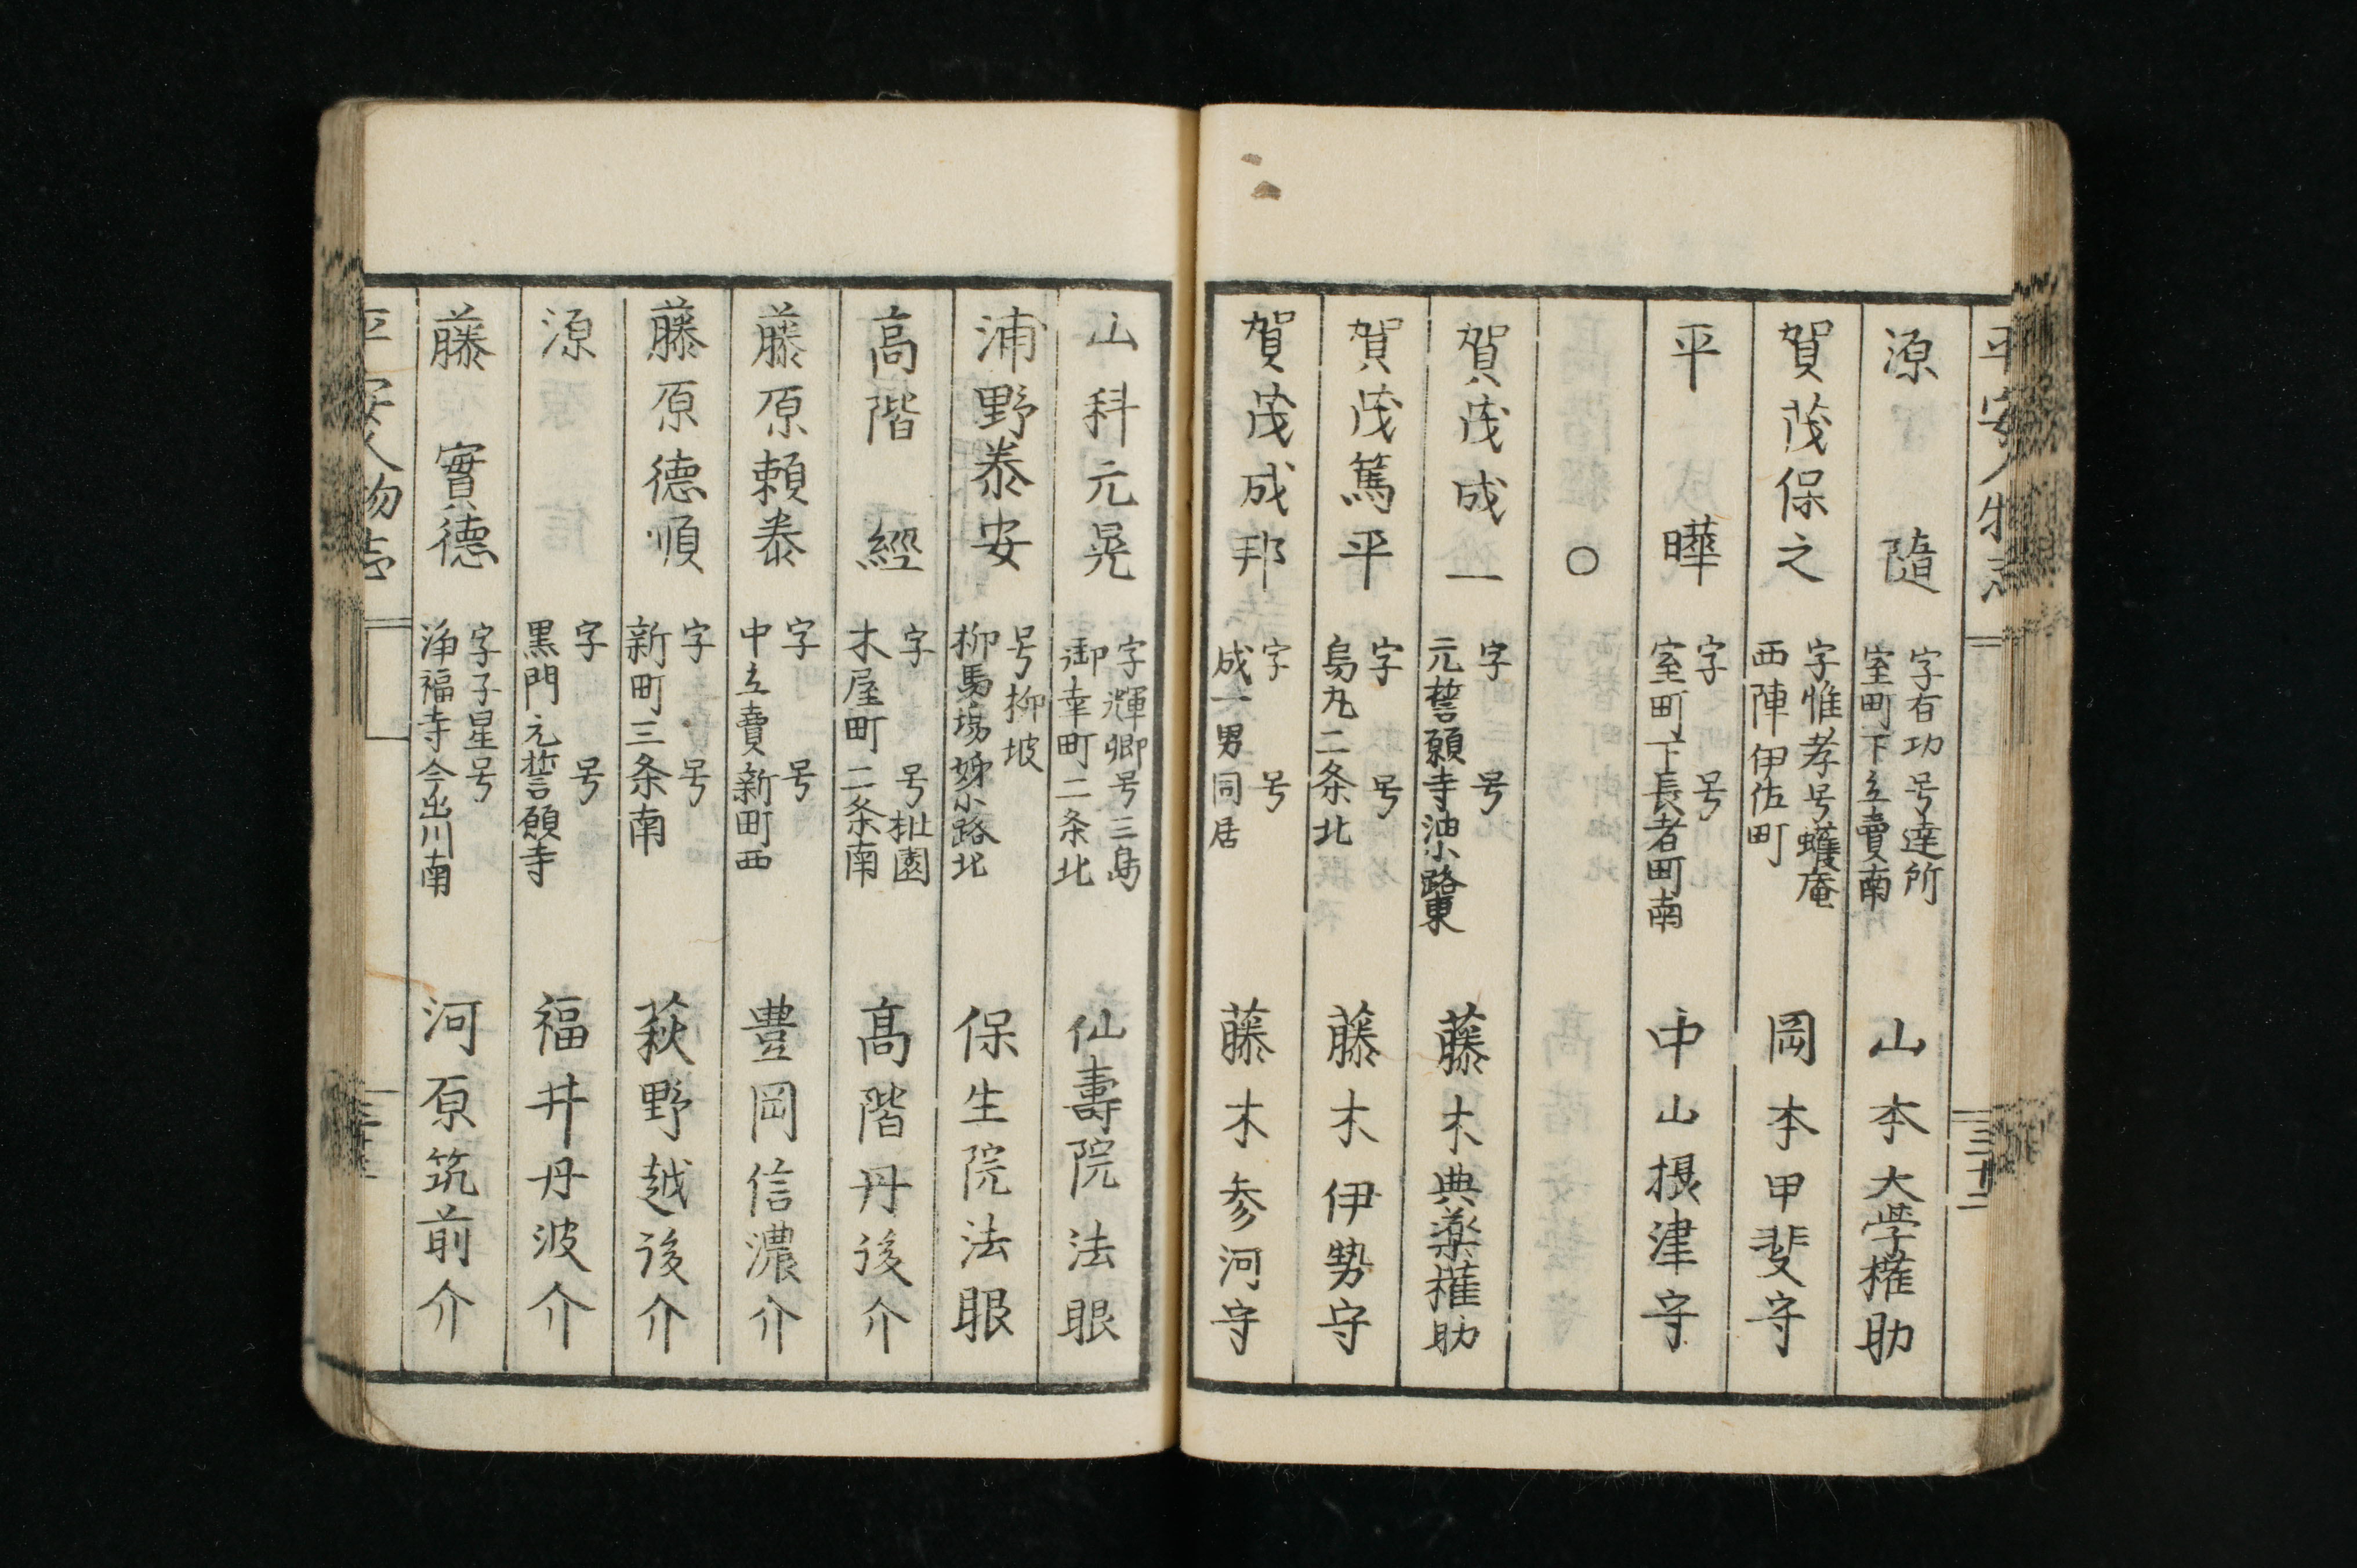 平安人物志
三十二
源 隨 字有功号達所 室町下立賣南 山本大学権助
賀茂保之 字惟孝号蠖庵 西陣伊佐町 岡本甲斐守
平 曄 字 号 室町下長者町南 中山摂津守
○
賀茂成一 字 号 元誓願寺油小路東 藤木典薬権助
賀茂篤平 字 号 烏丸二条北 藤木伊勢守
賀茂成邦 字 号 成一男同居 藤木参河守
山科元晃 字輝卿号三島 御幸町二条北 仙壽院法眼
浦野泰安 号柳坡 柳馬場姉小路北 保生院法眼
高階 經 字 号枳園 木屋町二条南 髙階丹後介
藤原頼泰 字 号 中立賣新町西 豊岡信濃介
藤原德順 字 号 新町三条南 萩野越後介
源 字 号 黒門元誓願寺 福井丹波介
藤 實德 字子星号 浄福寺今出川南 河原筑前介
平安人物志